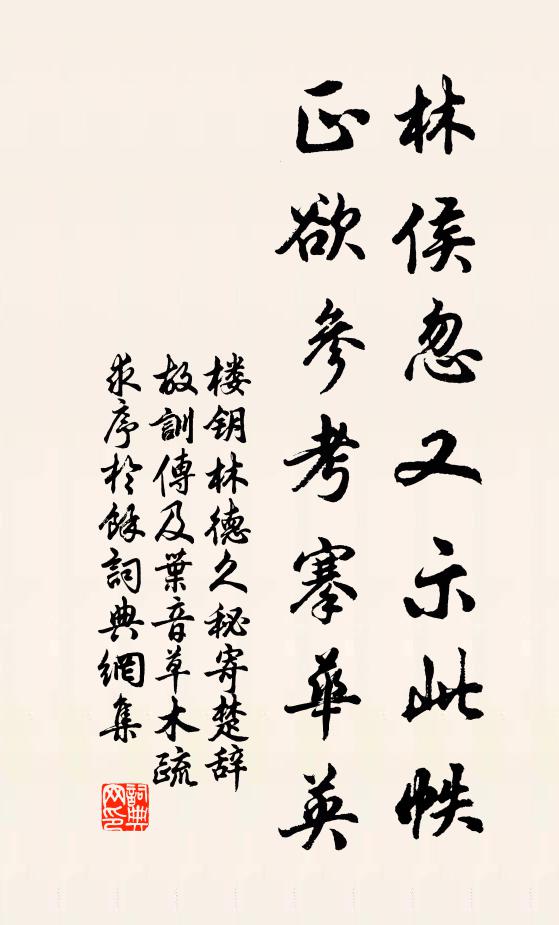 林侯忽又示此帙
正欲參考搴華英
楼钥林德久秘寄楚辞
故訓傳及葉音草木疏
求序於餘詞典網集
詞典網印